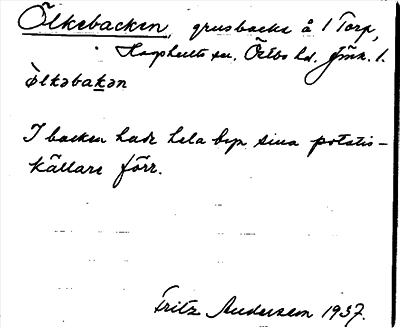 Ölkebacken, grusbacke å 1 Torp,
Kävsjö... sn, Östbo hd, Jönk. l.
ö̀lkəbakən
I backen hade hela byn sina potatis-
källare förr.
Fritz Andersson 1937.